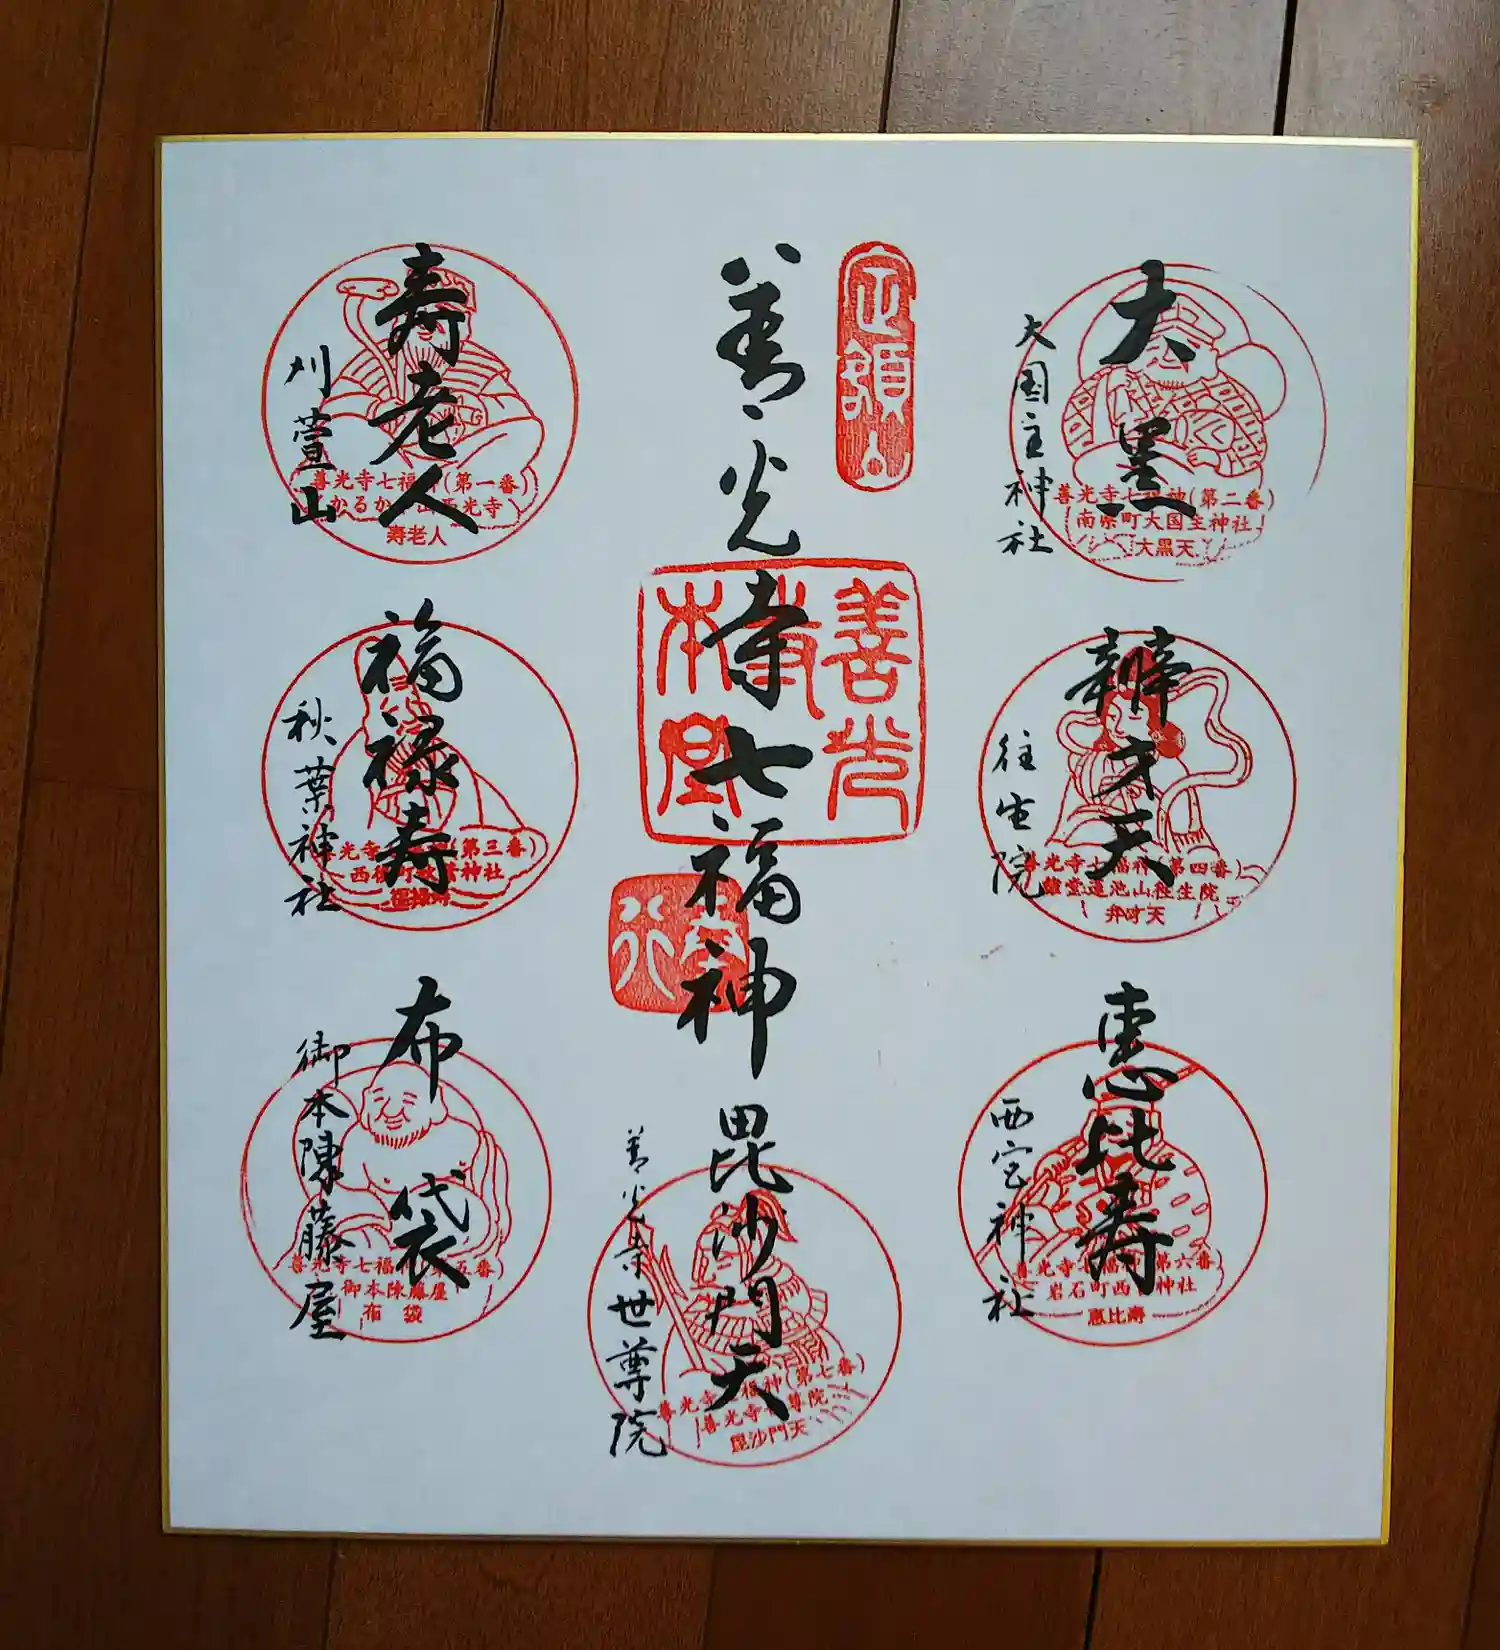 善光寺七福神
定額山
善光寺本堂
大黒
大国主神社
善光寺七福神(第二番)
大国主神社
大黒天
辨才天
往生院
善光寺七福神(第四番)
蓮池山往生院
弁才天
恵比寿
西宮神社
善光寺七福神(第六番)
岩石町西宮神社
恵比寿
毘沙門天
善光寺世尊院
善光寺七福神(第七番)
善光寺世尊院
毘沙門天
寿老人
刈萱山
善光寺七福神(第一番)
かるかや山西光寺
寿老人
福禄寿
秋葉神社
善光寺七福神(第三番)
秋葉神社
福禄寿
布袋
御本陳藤屋
善光寺七福神(第五番)
御本陳藤屋
布袋